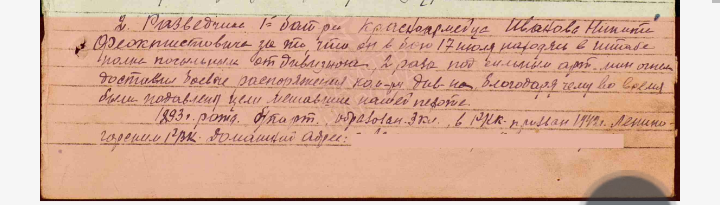 2. Разведчика 1й бат-реи Красноармейца Иванова Никиту
Феоктистовича за то, что он в бою 17 июля находясь в штабе
полка посыльным от дивизиона, 2 раза под сильным арт. мин огнем
доставлял боевые распоряжения ком-ру див-на, благодаря чему во время
были подавлены цели мешавшие нашей пехоте.
1893 г. рожд. б/парт. образован. 3 кл. в РКК призван 1942 г. Ленино-
горским РВК. Домашний адрес: